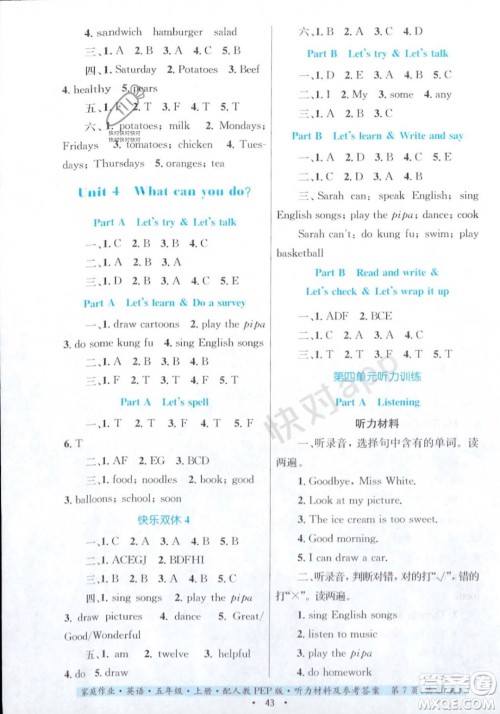 4. sandwich hamburger salad
三、1. A 2. B 3. B 4. C
四、1. Saturday 2. Potatoes 3. Beef
4. healthy 5. pears
五、1. T 2. F 3. T 4. F 5. F
六、1. potatoes; milk 2. Mondays;
Fridays 3. tomatoes; chicken 4. Tues-
days; Thursdays 5. oranges; tea
Unit 4 What can you do?
Part A Let's try & Let's talk
一、1. C 2. B 3. B 4. A
二、1. B 2. A 3. B 4. B
三、1. D 2. A 3. B 4. C 5. E
Part A Let's learn & Do a survey
一、1. draw cartoons 2. play the pipa
3. do some kung fu 4. sing English songs
二、1. B 2. C 3. C 4. A
三、1. C 2. B 3. D 4. A
Part A Let's spell
一、1. F 2. F 3. T 4. F 5. T
6. T
二、1. AF 2. EG 3. BD
三、1. food; noodles 2. book; good
3. balloons; school; soon
快乐双休 4
一、1. ACEGJ 2. BDFHI
二、1. A 2. A 3. C 4. B 5. C
三、1. C 2. D 3. B 4. A 5. E
四、1. sing songs 2. play the pipa
3. draw pictures 4. dance 5. Great/
Good/Wonderful
五、1. T 2. T 3. F 4. F 5. F
六、1. B 2. A 3. C 4. B
Part B Let's try & Let's talk
一、1. A 2. B 3. A
二、1. any 2. some 3. or 4. any
三、1. C 2. D 3. A 4. B
Part B Let's learn & Write and say
一、1. B 2. A 3. C 4. C
二、Sarah can: speak English; sing
English songs; play the pipa; dance; cook
Sarah can't: do kung fu; swim; play
basketball
Part B Read and write &
Let's check & Let's wrap it up
一、1. ADF 2. BCE
二、1. B 2. A 3. A 4. B
三、1. C 2. B 3. B 4. A
第四单元听力训练
Part A Listening
听力材料
一、听录音，选择句中含有的单词。读
两遍。
1. Goodbye, Miss White.
2. Look at my picture.
3. The ice cream is too sweet.
4. Go home now.
5. I can draw a car.
二、听录音，判断对错，对的打“√”，错的
打“×”。读两遍。
1. sing English songs
2. listen to music
3. play the pipa
家庭作业·英语·五年级·上册·配人教PEP版·听力材料及参考答案 第 7 页
43
快对app